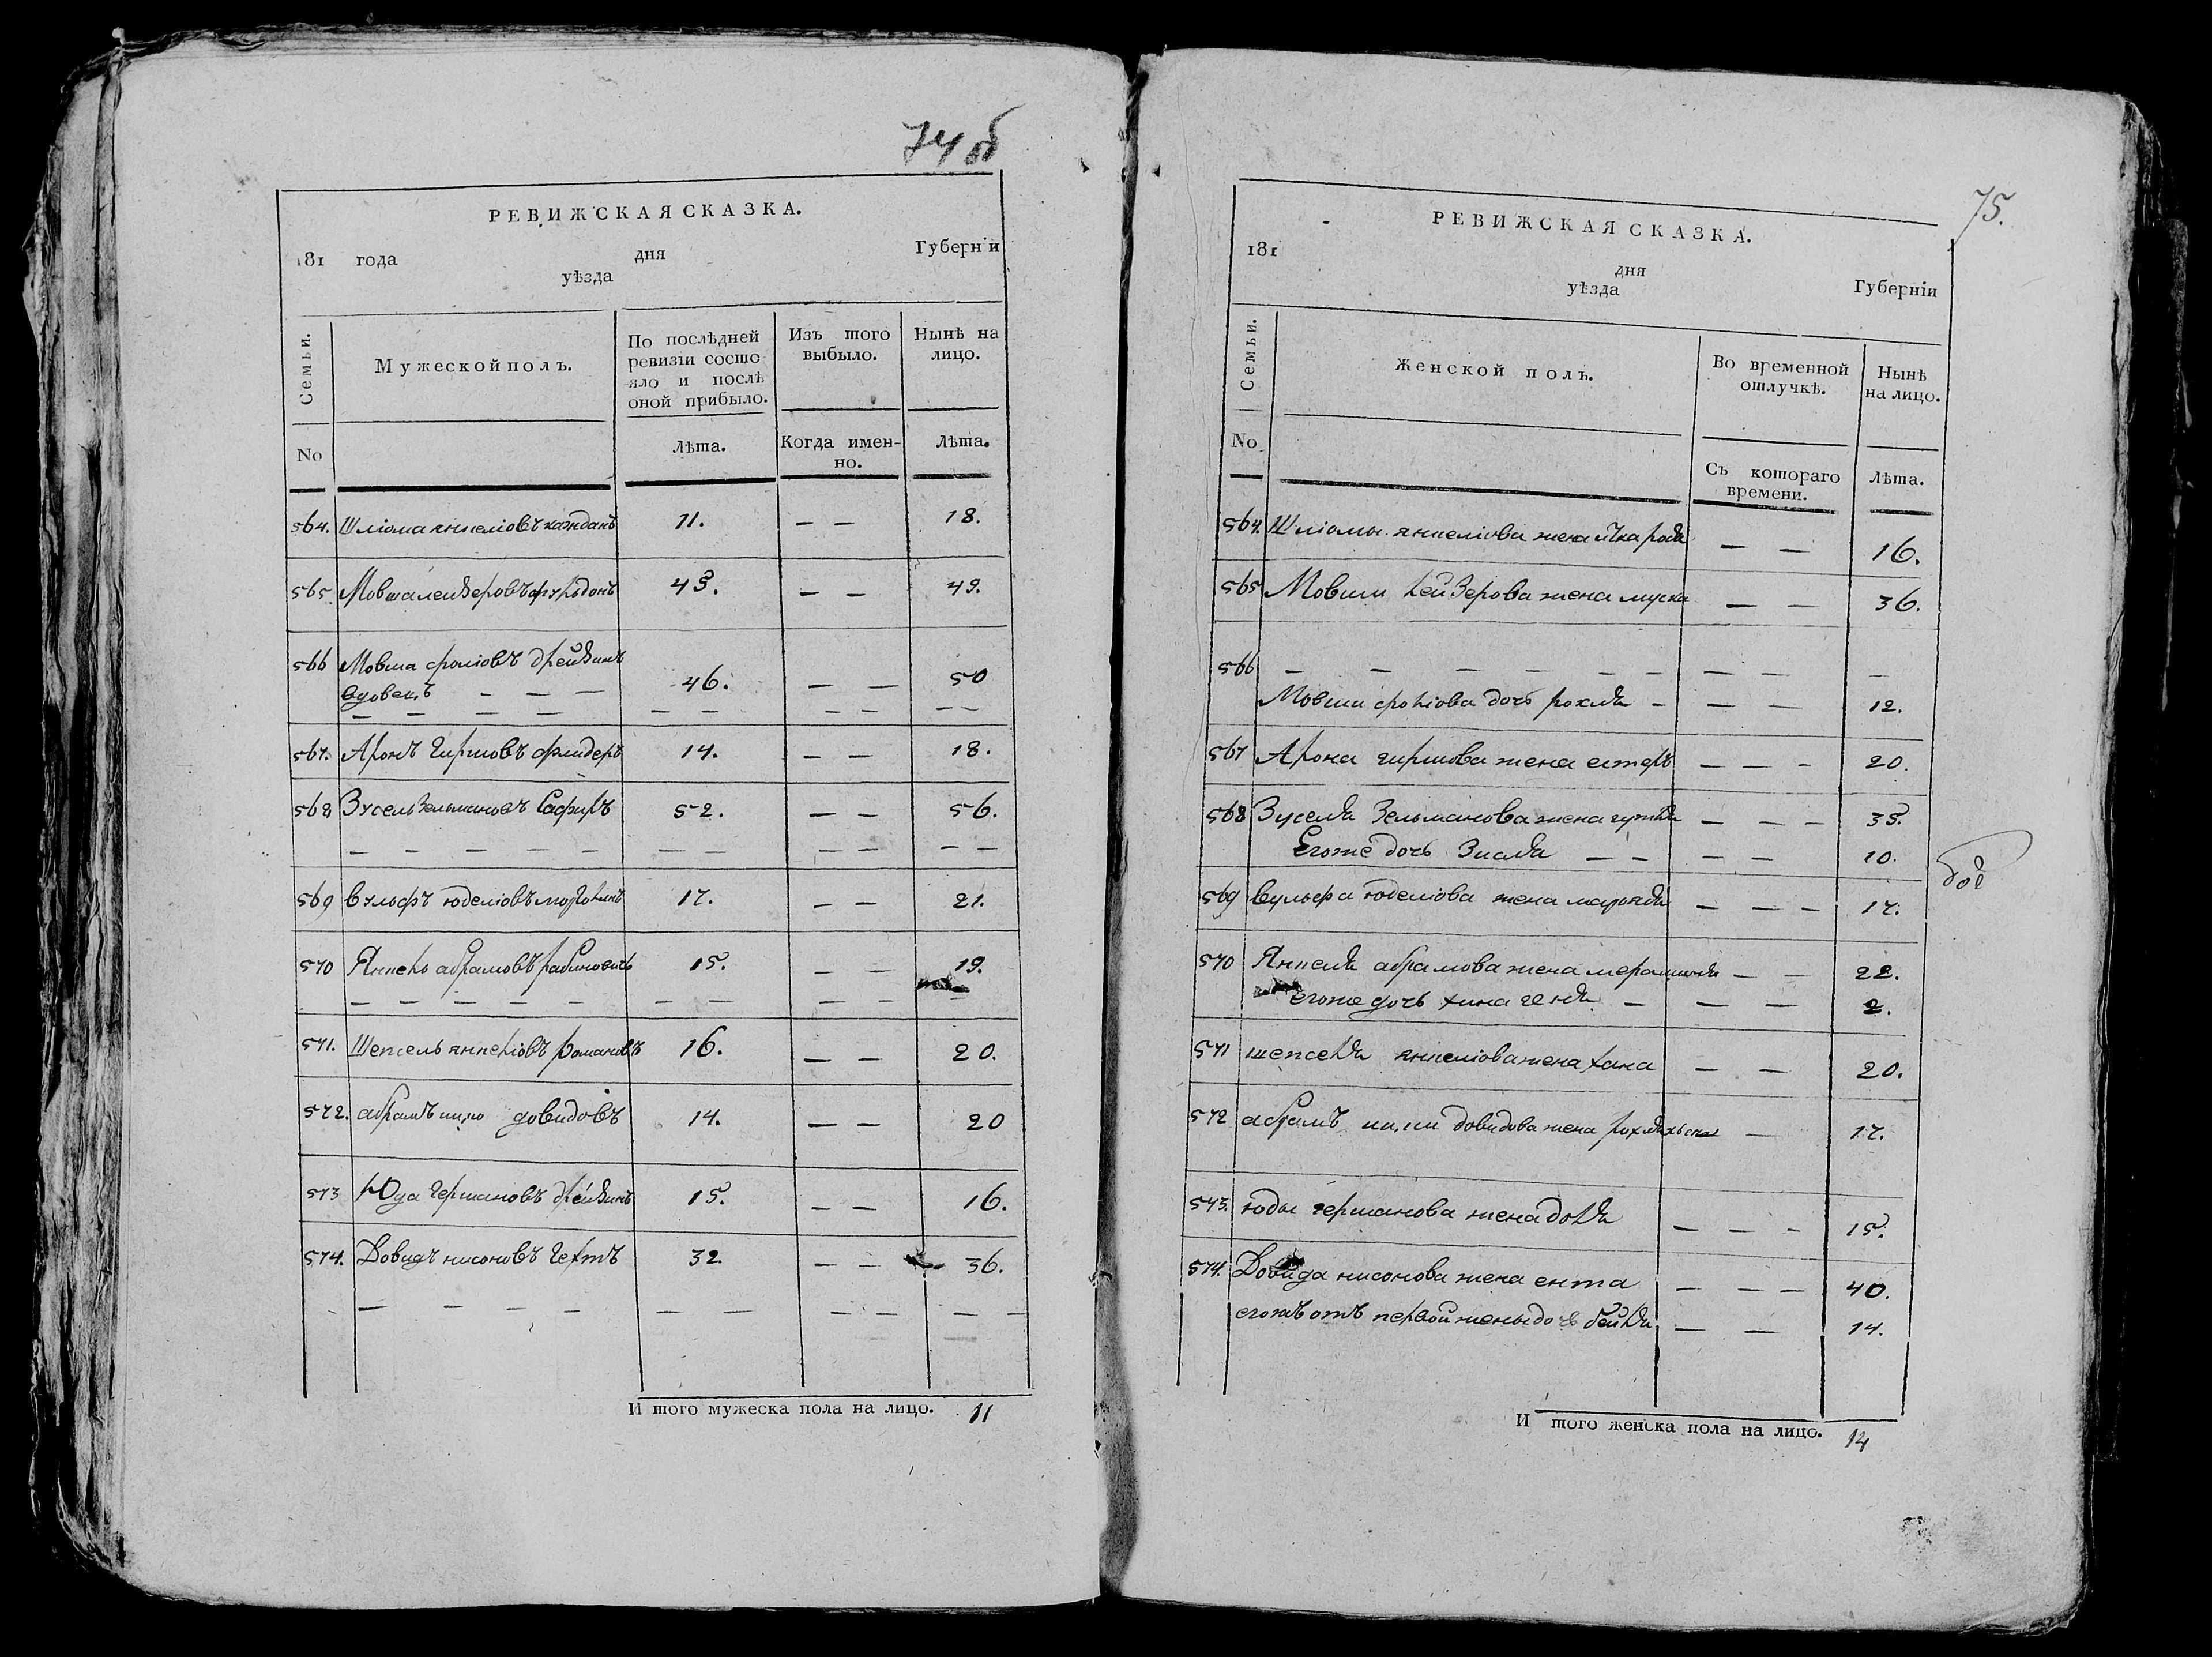 74 об
РЕВИЖСКАЯ СКАЗКА.
181 года дня Губерніи
уѣзда
Семьи.
Мужеской полъ.
По послѣдней ревизіи состояло и послѣ оной прибыло.
Изъ того выбыло.
Нынѣ на лицо.
No
Лѣта.
Когда именно.
Лѣта.
564. Шліома янкеліовъ каждань 11. — — 18.
565. Мовша лейзеровъ 43. — — 49.
566 Мовша фроліовъ дрейзинъ
вдовецъ — — — 46. — — 50
567. Аронъ гиршовъ флидеръ 14. — — 18.
568 Зусель зельмановъ Сафиръ 52. — — 56.
569 вульфъ юделіовъ 17. — — 21.
570 Янкель абрамовъ рабиновичь 15. — — 19.
571. Шепсель янкеліовъ романовъ 16. — — 20.
572. абрамъ ицко довидовъ 14. — — 20
573 Юда гершановъ дрейзинъ 15. — — 16.
574. Довидъ нисоновъ гехтъ 32 — — 36.
И того мужеска пола на лицо. 11
75.
РЕВИЖСКАЯ СКАЗКА.
181 дня
уѣзда Губерніи
Семьи.
Женской полъ.
Во временной отлучкѣ.
Нынѣ на лицо.
No
Съ котораго времени.
Лѣта.
564. Шліомы янкеліова жена — — 16.
565 Мовши лейзерова жена муска — — 36.
566 — — — — — — — — —
Мовши фроліова дочь рохля — — — 12.
567 Арона гиршова жена естеръ — — — 20.
568 Зуселя зельманова жена — — — 35.
Егоже дочь Зисля — — — — 10.
569 вульфа юделіова жена — — — 17.
570 Янкеля абрамова жена — — 22.
егоже дочь хина геня — — — 2.
571 шепселя янкеліова жена хана — — 20.
572 абрамъ ицки довидова жена — 17.
573. юды гершанова жена доля — — — 15.
574. Довида нисонова жена ента — — — 40.
егожъ отъ первой жены дочь бейля — — 14.
И того женска пола на лицо. 14